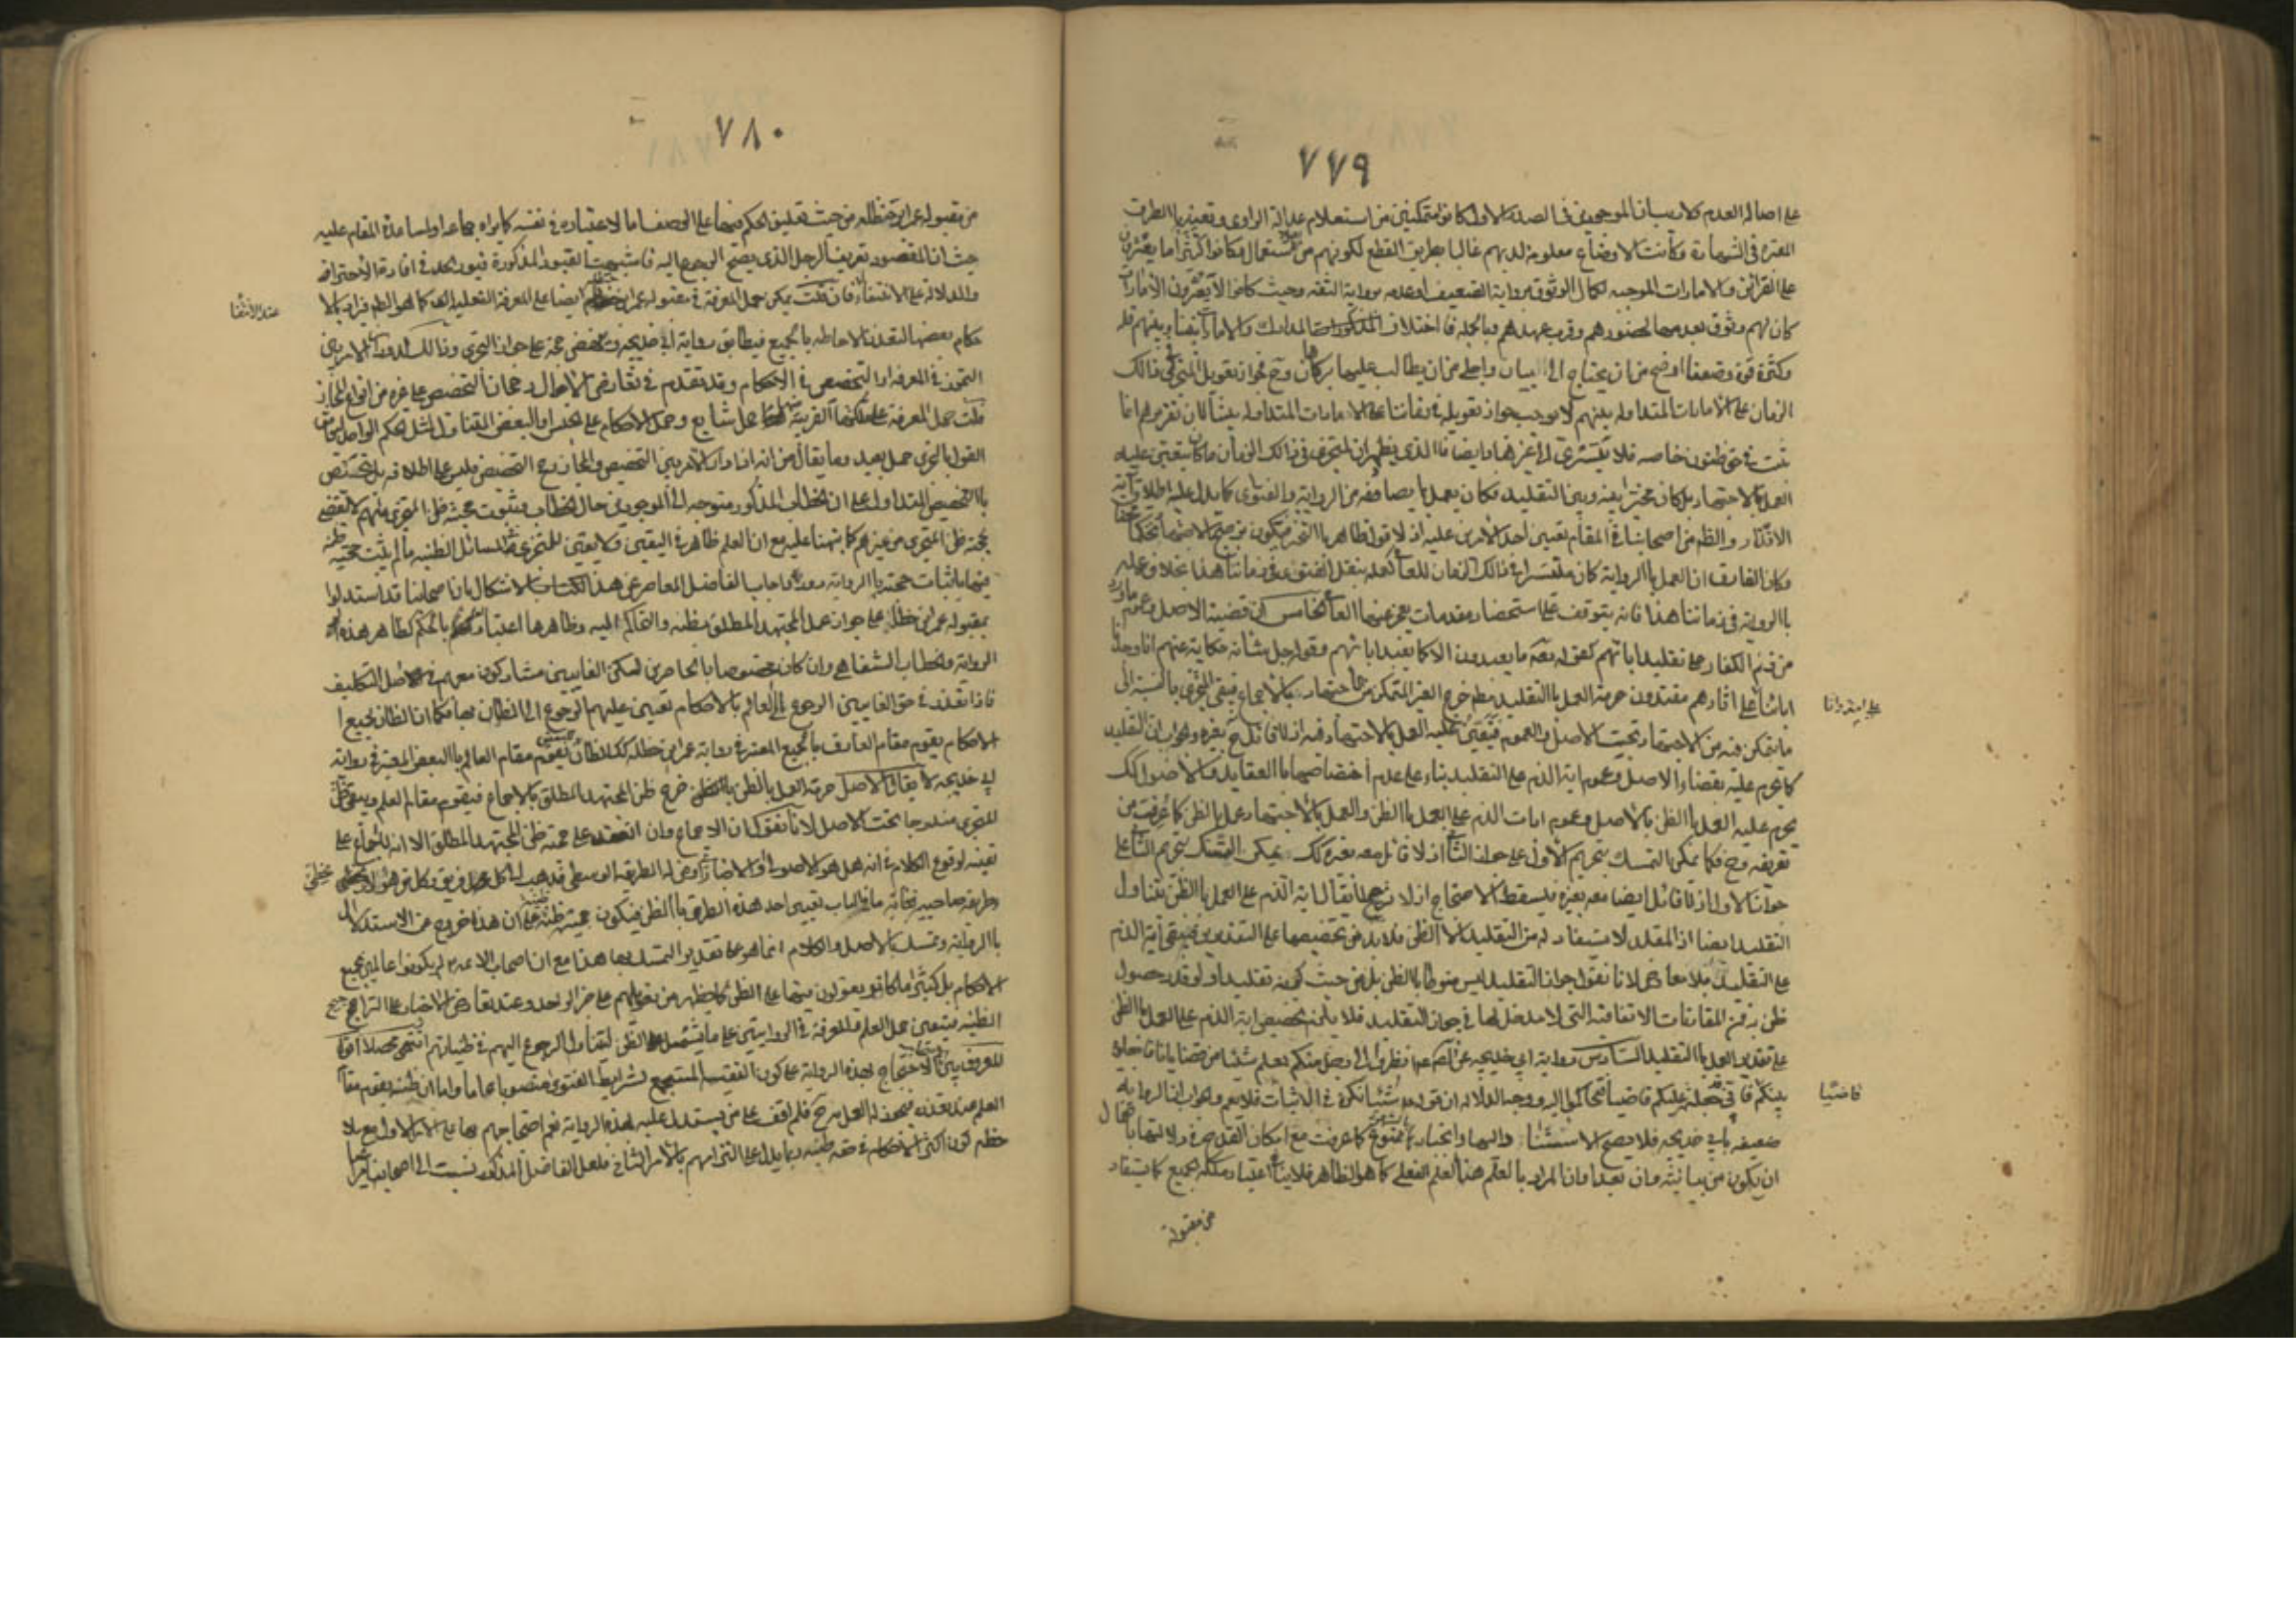 ٧٧٩
على اصالة العدم كلا ريب ان الموجودين في الصدر الاول كانوا متمكنين من استعلام عدالة الراوي وتعيينه بالطرق
المعتبرة في الشهادة وكانت الاوضاع معلومة لديهم غالبا بطريق القطع لكونهم من اهل الاستعمال وكانوا كثيرا ما يعثرون
على القرائن والامارات الموجبة لكمال الوثوق برواية الضعيف او عدمه برواية الثقة وحيث كانوا لا يعثرون الامارات
كان لهم وثوق بعدمها لحضورهم وقرب عهدهم وبالجملة فاختلاف المدارك والامارات بيننا وبينهم قلة
وكثرة قوة وضعفا اوضح من ان يحتاج الى البيان واجلى من ان يطالب عليها ببرهان وح فجواز تعويل المتجزي في ذلك
الزمان على الامارات المتداولة بينهم لا يوجب جواز تعويله في زماننا على الامارات المتداولة بيننا لان تقريرهم انما
ثبت في حق ظنون خاصة فلا يتسرى الى غيرها وايضا فالذي يظهر ان المتجزي في ذلك الزمان ما كان يتعين عليه
العمل بالاجتهاد بل كان مخيرا بينه وبين التقليد فكان يعمل بما يصادفه من الرواية والفتوى كما يدل عليه اطلاق آية
الانذار والظ من اصحابنا في المقام تعيين احد الامرين عليه اذ لا قول ظاهر بالتخيير فيكون ترجيح الاجتهاد تحكما
وكان الفارق ان العمل بالرواية كان متيسرا في ذلك الزمان للعامي كعمله بنقل الفتوى في زماننا هذا بخلاف عمله
بالرواية في زماننا هذا فانه يتوقف على استحضار مقدمات يعجز عنها العامي الخامس ان قضية الاصل وعموم ما ورد
من ذم الكفار على تقليد ابائهم كقوله تعه ما يعبدون الا كما يعبد اباؤهم وقوله جل شانه حكاية عنهم انا وجدنا
اباءنا على امة وانا على اثارهم مقتدون حرمة العمل بالتقليد مطم خرج الغير المتمكن من الاجتهاد بالاجماع فيبقى المتجزي بالنسبة الى
ما يتمكن فيه من الاجتهاد تحت الاصل والعموم فيتعين عليه العمل بالاجتهاد فيه اذ لا قائل ح بغيره والجواب ان التقليد
كما يحرم عليه بقضاء الاصل وعموم اية الذم على التقليد بناء على عدم اختصاصها بالعقايد والاصول كك
يحرم عليه العمل بالظن بالاصل وعموم ايات الذم على العمل بالظن والعمل بالاجتهاد عمل بالظن كما عرفت من
تعريفه وح فكما يمكن التمسك بتحريم الاول على جواز الثاني اذ لا قائل معه بغيره كك يمكن التمسك بتحريم الثاني على
جواز الاول اذ لا قائل ايضا معه بغيره فيسقط الاحتجاج اذ لا ترجيح لا يقال اية الذم على العمل بالظن يتناول
التقليد ايضا اذ المقلد لا يستفاد له من التقليد الا الظن فلا بد من تخصيصها على التقديرين فيبقى آية الذم
على التقليد بلا معارض لانا نقول جواز التقليد ليس منوطا بالظن بل من حيث كونه تقليدا ولو قدر حصول
ظن به فمن المقارنات الاتفاقية التي لا مدخل لها في جواز التقليد فلا يلزم تخصيص اية الذم على العمل بالظن
على تقدير العمل بالتقليد السادس رواية ابي خديجة عن الصم عم انظروا الى رجل منكم يعلم شيئا من قضايانا فاجعلوه
بينكم قاضيا فاني قد جعلته عليكم قاضيا فتحاكموا اليه ووجه الدلالة ان قوله شيئا نكرة في الاثبات فلا يعم والجواب ان الرواية
ضعيفة بابي خديجة فلا يصح الاستناد اليها وانجبارها بالشهرة ممنوع كما عرفت مع امكان القدح في دلالتها باحتمال
ان يكون من بيانية وان بعد او ان المراد بالعلم هنا العلم الفعلي كما هو الظاهر فلا ينافي اعتبار ملكة الجميع كما يستفاد
من مقبولة
٧٨٠
من مقبولة عمر ابن حنظلة من حيث تعليق الحكم فيها على الوصف اما لاعتباره في نفسه كما يراه جماعة او لمساعدة المقام عليه
حيث ان المقصود تعريف الرجل الذي يصح الرجوع اليه فاشبهت القيود المذكورة قيود الحد في افادة الاحتراز
والدلالة على الانتفاء عند الانتفاء فان قلت يمكن حمل المعرفة في مقبولة عمر ابن حنظلة ايضا على المعرفة الفعلية كما هو الظ فيراد بالا
حكام بعضها لتعذر الاحاطة بالجميع فيطابق رواية ابي خديجة وتنهض حجة على جواز التجزي وذلك لدوران الامر بين
التجوز في المعرفة او التخصيص في الاحكام وقد تقدم في تعارض الاحوال رجحان التخصيص على غيره من انواع المجاز
قلت حمل المعرفة على ملكتها القريبة حمل شايع وحمل الاحكام على الجنس او البعض المتناول لمثل الحكم الواحد لخاص
القول بالتجزي حمل بعيد وما يقال من انه اذا دار الامر بين التخصيص والمجاز رجح التخصيص فليس على اطلاقه بل يختص
بالتخصيص المتداول على ان الخطاب المذكور متوجه الى الموجودين حال الخطاب وثبوت حجية ظن المتجزي منهم لا تقتضي
حجية ظن المتجزي من غيرهم كما نبهنا عليه مع ان العلم ظاهر في اليقين ولا يقين للمتجزي في المسائل الظنية ما لم يثبت حجية ظنه
فيها باثبات حجيته بالرواية دور واجاب الفاضل المعاصر عن هذا الاشكال بان اصحابنا قد استدلوا
بمقبولة عمر ابن حنظلة على جواز عمل المجتهد المطلق بظنه والتحاكم اليه وظاهرها اعتبار العلم بالحكم كظاهر هذه
الرواية والخطاب الشفاهي وان كان مختصا بالحاضرين لكن الغايبين مشاركون معهم في اصل التكليف
فاذا تعذر في حق الغايبين الرجوع الى العالم بالاحكام تعين عليهم الرجوع الى الظان بها فكما ان الظان بجميع ا
لاحكام يقوم مقام العارف بالجميع المعتبر في رواية عمر ابن حنظلة كك الظان ببعض يقوم مقام العالم بالبعض المعتبر في رواية
ابي خديجة لا يقال الاصل حرمة العمل بالظن خرج ظن المجتهد المطلق بالاجماع فيقوم مقام العلم ويبقى ظن
المتجزي مندرجا تحت الاصل لانا نقول ان الاجماع وان انعقد على حجية ظن المجتهد المطلق الا انه لا اجماع على
تعيينه لوقوع الكلام في انه هل هو الاصولي او الاخباري او من له الطريقة الوسطى قد ذهب الى كل فريق وكل من هؤلاء يخطئ
طريقة صاحبه فغاية ما في الباب تعيين احد هذه الطرق بالظن فيكون حجية ظنه على ان هذا خروج عن الاستدلال
بالرواية وتمسك بالاصل والكلام انما هو على تقدير التمسك بها هذا مع ان اصحاب الائمة عم لم يكونوا عالمين بجميع
الاحكام بل كثيرا ما كانوا يعولون فيها على الظن كما يظهر من تعويلهم على خبر الواحد وعند تعارض الاخبار على التراجيح
الظنية فيتعين حمل العلم والمعرفة في الروايتين على ما يشمل الظن ليتناول الرجوع اليهم في ظنياتهم انتهى محصلا اقول
المعروف بين اصحابنا الاحتجاج بهذه الرواية على كون الفقيه المستجمع لشرايط الفتوى منصوبا عاما واما ان ظنه يقوم مقام
العلم عند تعذره فيجوز له العمل به ح فلم اقف على من يستدل عليه بهذه الرواية نعم احتجاجهم بها على الامر الاول مع ملا
حظة كون اكثر الاحكام في حقه ظنية ربما يدل على التزامهم بالامر الثاني فلعل الفاضل المذكور نسبه الى اصحابنا نظرا